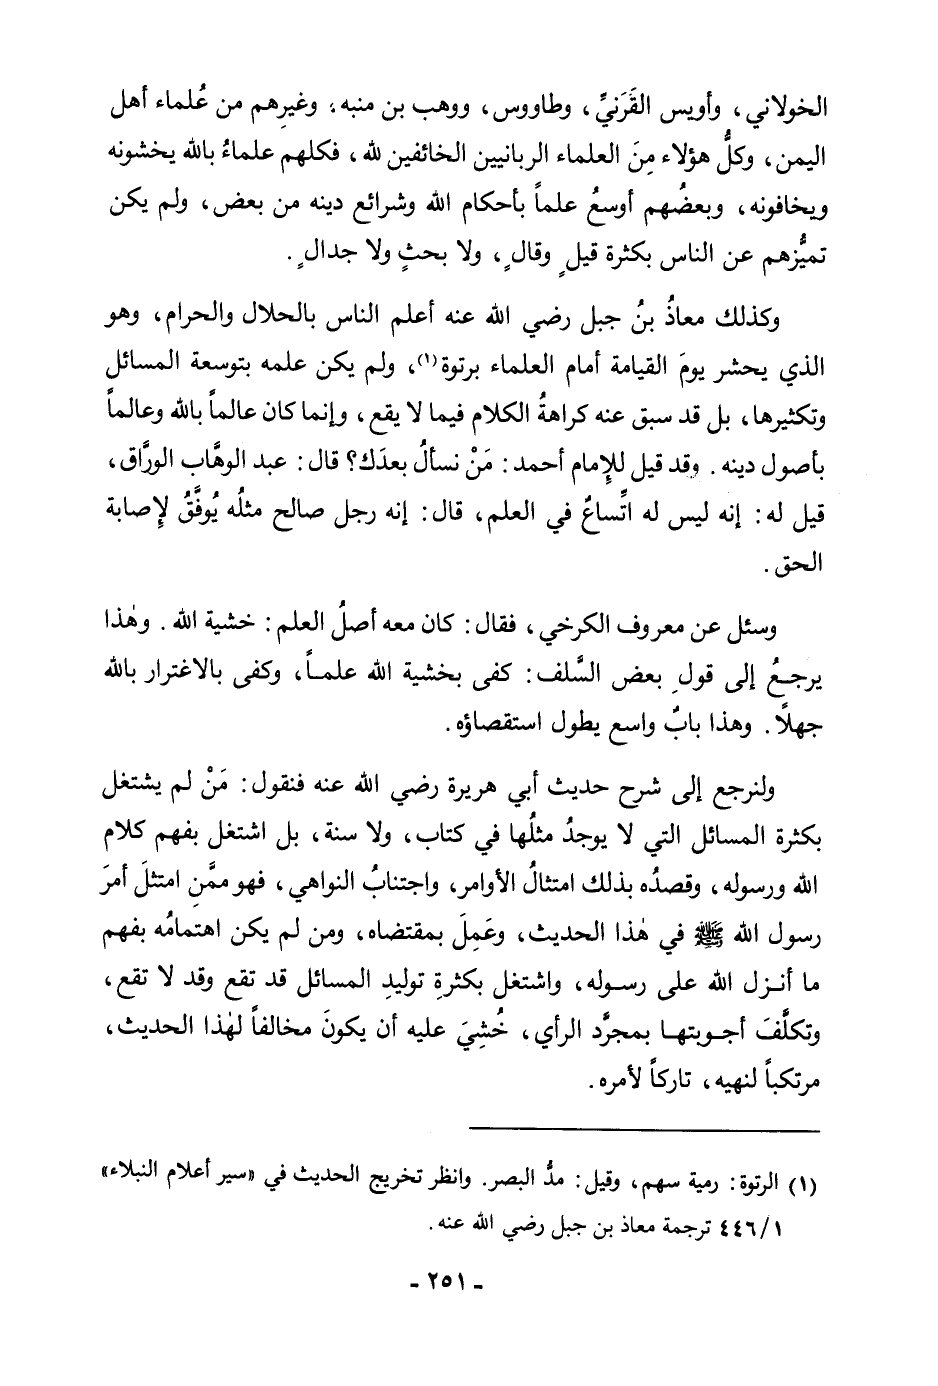 الخولاني، وأويس القَرَنيِّ، وطاووس، ووهب بن منبه، وغيرِهم من عُلماء أهل
اليمن، وكلُّ هؤلاء مِنَ العلماء الربانيين الخائفين لله، فكلهم علماءُ بالله يخشونه
ويخافونه، وبعضُهم أوسعُ علماً بأحكام الله وشرائع دينه من بعض، ولم يكن
تميُّزهم عن الناس بكثرة قيلٍ وقالٍ، ولا بحثٍ ولا جدالٍ.
وكذلك معاذُ بنُ جبل رضي الله عنه أعلم الناس بالحلال والحرام، وهو
الذي يحشر يومَ القيامة أمام العلماء برتوة(١)، ولم يكن علمه بتوسعة المسائل
وتكثيرها، بل قد سبق عنه كراهةُ الكلام فيما لا يقع، وإنما كان عالماً بالله وعالماً
بأصول دينه. وقد قيل للإمام أحمد: مَنْ نسألُ بعدَك؟ قال: عبد الوهَّاب الورَّاق،
قيل له: إنه ليس له اتِّساعٌ في العلم، قال: إنه رجل صالح مثلُه يُوفَّقُ لإصابة
الحق.
وسئل عن معروف الكرخي، فقال: كان معه أصلُ العلم: خشية الله. وهٰذا
يرجعُ إلى قولِ بعض السَّلف: كفى بخشية الله علماً، وكفى بالاغترار بالله
جهلًا. وهذا بابٌ واسع يطول استقصاؤه.
ولنرجع إلى شرح حديث أبي هريرة رضي الله عنه فنقول: مَنْ لم يشتغل
بكثرة المسائل التي لا يوجدُ مثلُها في كتاب، ولا سنة، بل اشتغل بفهم كلام
الله ورسوله، وقصدُه بذلك امتثالُ الأوامر، واجتنابُ النواهي، فهو ممَّنِ امتثلَ أمرَ
رسول الله ﷺ في هٰذا الحديث، وعَمِلَ بمقتضاه، ومن لم يكن اهتمامُه بفهم
ما أنزل الله على رسوله، واشتغل بكثرةِ توليدِ المسائل قد تقع وقد لا تقع،
وتكلَّفَ أجوبتها بمجرَّد الرأي، خُشِيَ عليه أن يكونَ مخالفاً لهٰذا الحديث،
مرتكباً لنهيه، تاركاً لأمره.
(١) الرتوة: رمية سهم، وقيل: مدُّ البصر. وانظر تخريج الحديث في «سير أعلام النبلاء»
٤٤٦/١ ترجمة معاذ بن جبل رضي الله عنه.
- ٢٥١ -